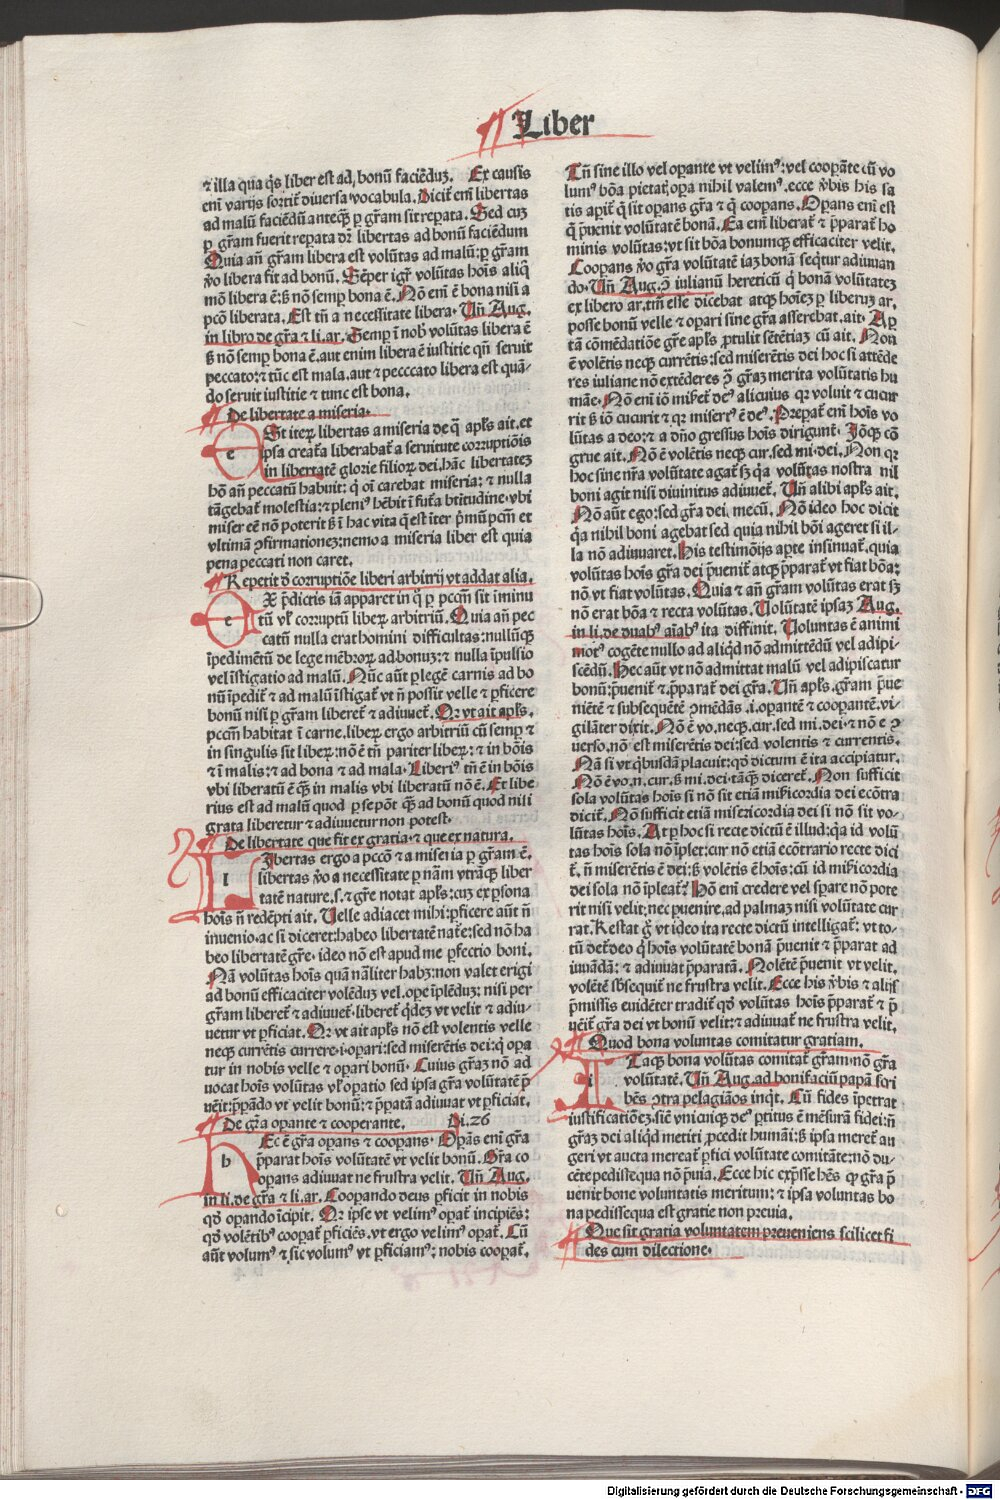 Liber
⁊ illa qua q̃s liber est ad bonũ faciẽdũ. Ex causis
enĩ varijs sortit̃ diuersa vocabula. Dicit̃ enĩ libertas
ad malũ faciẽdũ anteq̃ȝ ꝑ gr̃am sit reꝑata. Sed cuȝ
ꝑ gr̃am fuerit reꝑata dr̃ libertas ad bonũ faciẽdum
Quia añ gr̃am libera est volũtas ad malũ: ꝑ gr̃am
ṽo libera fit ad bonũ. Sẽper igr̃ volũtas hoĩs aliq̃
mõ libera ẽ: ß nõ semꝑ bona ẽ. Nõ enĩ ẽ bona nisi a
pcõ liberata. Est tñ a necessitate libera. Vñ Aug.
in libro de gr̃a ⁊ li. ar. Semꝑ ĩ nob̾ volũtas libera ẽ
ß nõ semꝑ bona ẽ. aut enim libera ẽ iustitie qñ seruit
peccato: ⁊ tũc est mala. aut ⁊ pecccato libera est quã-
do seruit iustitie ⁊ tunc est bona.
De libertate a miseria.
e Sit iteꝝ libertas a miseria de q̃ apl̃s ait. et
ipsa creat̃a liberabat̃ a seruitute corruptiõis
in libertatẽ glorie filioꝝ dei. hãc libertateȝ
hõ añ peccatũ habuit: q̃ oĩ carebat miseria: ⁊ nulla
tãgebat̃ molestia: ⁊ pleni⁹ hẽbit ĩ fut̃a bt̃itudine. vbi
miser eẽ nõ poterit ß ĩ hac vita q̃ est ĩter p̃mũ pcm̃ et
vltimã ꝯfirmationeȝ: nemo a miseria liber est quia
pena peccati non caret.
Repetit ð corruptiõe liberi arbitrij vt addat alia.
e X p̃dictis iã apparet in q̃ ꝑ pccm̃ sit ĩminu
tũ vl̃ corruptũ libeꝝ arbitriũ. Quia añ pec
catũ nulla erat homini difficultas: nullũq̃ȝ
ĩpedimẽtũ de lege mẽbroꝝ ad bonuȝ: ⁊ nulla ĩpulsio
vel ĩstigatio ad malũ. Nũc aũt ꝑ legẽ carnis ad bo
nũ ĩpedit̃ ⁊ ad malũ ĩstigat̃ vt ñ possit velle ⁊ ꝑficere
bonũ nisi ꝑ gr̃am liberet̃ ⁊ adiuuet̃. Qr vt ait apl̃s.
pccm̃ habitat ĩ carne. libeꝝ ergo arbitriũ cũ semꝑ ⁊
in singulis sit libeꝝ: nõ ẽ tñ pariter libeꝝ: ⁊ in bõis
⁊ ĩ malis: ⁊ ad bona ⁊ ad mala. Liberi⁹ tñ ẽ in bõis
vbi liberatũ ẽ q̃ȝ in malis vbi liberatũ nõ ẽ. Et libe
rius est ad malũ quod ꝑ se põt q̃ȝ ad bonũ quod nisi
grata liberetur ⁊ adiuuetur non potest.
De libertate que fit ex gratia. ⁊ que ex natura.
l Ibertas ergo a pccõ ⁊ a miseria ꝑ gr̃am ẽ.
libertas ṽo a necessitate ꝑ nãm vtrãq̃ȝ liber
tatẽ nature. s. ⁊ gr̃e notat apl̃s: cuȝ ex ꝑsona
hoĩs ñ redẽpti ait. Velle adiacet mihi: ꝑficere aũt ñ
inuenio. ac si diceret: habeo libertatẽ nat̃e: sed nõ ha
beo libertatẽ gr̃e. ideo nõ est apud me ꝑfectio boni.
Nã volũtas hoĩs quã nãliter habȝ: non valet erigi
ad bonũ efficaciter volẽduȝ vel. oꝑe ĩplẽduȝ: nisi per
gr̃am liberet̃ ⁊ adiuuet̃. liberet̃ q̃dẽȝ vt velit ⁊ adiu-
uetur vt ꝑficiat. Qr vt ait apl̃s nõ est volentis velle
necq̃ȝ currẽtis currere. i. oꝑari: sed miserẽtis dei: q̃ oꝑa
tur in nobis velle ⁊ oꝑari bonũ. Cuius gr̃aȝ nõ ad
uocat hoĩs volũtas vl̃ oꝑatio sed ipsa gr̃a volũtatẽ p̃
uẽit: p̃ꝑãdo vt velit bonũ: ⁊ p̃ꝑatã adiuuat vt ꝑficiat.
De gr̃a oꝑante ⁊ cooꝑerante. Di. 26
h Ec ẽ gr̃a oꝑans ⁊ cooꝑans. Oꝑãs enĩ gr̃a
p̃parat hoĩs volũtatẽ vt velit bonũ. Gr̃a co
oꝑans adiuuat ne frustra velit. Vñ Aug.
in li. de gr̃a ⁊ li. ar. Cooꝑando deus ꝑficit in nobis
qð oꝑando ĩcipit. Qr ipse vt velim⁹ oꝑat̃ incipiẽs:
qð volẽtib⁹ cooꝑat̃ ꝑficiẽs. vt ergo velim⁹ oꝑat̃. Cũ
aũt volum⁹ ⁊ sic volum⁹ vt ꝑficiam⁹: nobis cooꝑat̃.
Tñ sine illo vel oꝑante vt velim⁹: vel cooꝑãte cũ vo
lum⁹ bõa pietat̃ oꝑa nihil valem⁹. ecce ṽbis his sa
tis aꝑit̃ q̃ sit oꝑans gr̃a ⁊ q̃ cooꝑans. Oꝑans enĩ est
q̃ p̃uenit volũtatẽ bonã. Ea enĩ liberat̃ ⁊ p̃parat̃ ho
minis volũtas: vt sit bõa bonumq̃ȝ efficaciter velit.
Cooꝑans ṽo gr̃a volũtatẽ iaȝ bonã seq̃tur adiuuan
do. Vñ Aug. ꝯ̃ iulianũ hereticũ q̃ bonã volũtateȝ
ex libero ar. tm̃ esse dicebat atq̃ȝ hoĩeȝ ꝑ liberuȝ ar.
posse bonũ velle ⁊ oꝑari sine gr̃a asserebat. ait. Aꝑ
tã cõmẽdatiõe gr̃e apl̃s ꝓtulit sẽtẽtiaȝ cũ ait. Non
ẽ volẽtis neq̃ȝ currẽtis: sed miserẽtis dei hoc si attẽde
res iuliane nõ extẽderes ꝯ̃ gr̃aȝ merita volũtatis hu
mãe. Nõ enĩ iõ mis̃et̃ de⁹ alicuius qr voluit ⁊ cucur
rit ß iõ cucurit ⁊ qr misert̃⁹ ẽ de⁹. Preꝑat̃ enĩ hoĩs vo
lũtas a deo: ⁊ a dño gressus hoĩs dirigunt̃. Iõq̃ȝ cõ
grue ait. Nõ ẽ volẽtis neq̃ȝ cur. sed mi. dei. Non qr
hoc sine nr̃a volũtate agat̃ sȝ q̃a volũtas nostra nil
boni agit nisi diuinitus adiuuet̃. Vñ alibi apl̃s ait.
Nõ aũt ego: sed gr̃a dei mecũ. Nõ ideo hoc dicit
q̃a nihil boni agebat sed quia nihil bõi ageret si il-
la nõ adiuuaret. His testimõijs aꝑte insinuat̃. quia
volũtas hoĩs gr̃a dei p̃uenit̃ atq̃ȝ p̃parat̃ vt fiat bõa:
nõ vt fiat volũtas. Quia ⁊ añ gr̃am volũtas erat sȝ
nõ erat bõa ⁊ recta volũtas. Volũtatẽ ipsaȝ Aug.
in li. de duab⁹ aĩab⁹ ita diffinit. Voluntas ẽ animi
mot⁹ cogẽte nullo ad aliq̃d nõ admittẽdũ vel adipi-
scẽdũ. Hec aũt vt nõ admittat malũ vel adipiscatur
bonũ: p̃uenit̃ ⁊ p̃parat̃ dei gr̃a. Vñ apl̃s. gr̃am p̃ue
niẽtẽ ⁊ subsequẽtẽ ꝯmẽdãs .i. oꝑantẽ ⁊ cooꝑantẽ. vi-
gilãter dixit. Nõ ẽ vo. neq̃ȝ. cur. sed mi. dei. ⁊ nõ e ꝯ
uerso. nõ est miserẽtis dei: sed volentis ⁊ currentis.
Nã si vt q̃busdã placuit: qð dictum ẽ ita accipiatur.
Nõ ẽ vo. n. cur. ß mi. dei. tãq̃ȝ diceret̃. Non sufficit
sola volũtas hoĩs si nõ sit etiã mis̃icordia dei ecõtra
dicit̃. Nõ sufficit etiã misericordia dei si nõ sit vo-
lũtas hoĩs. At ꝑ hoc si recte dictũ ẽ illud: q̃a id volũ
tas hoĩs sola nõ ĩplet: cur nõ etiã ecõtrario recte dici
t̃. ñ miserẽtis ẽ dei: ß volẽtis ẽ hoĩs: cũ id mis̃icordia
dei sola nõ ĩpleat? Hõ enĩ credere vel sꝑare nõ pote
rit nisi velit: nec puenire. ad palmaȝ nisi volũtate cur
rat. Restat g̃ vt ideo ita recte dictũ intelligat̃: vt to-
tũ det̃ deo q̃ hoĩs volũtatẽ bonã p̃uenit ⁊ p̃parat ad
iuuãdã: ⁊ adiuuat p̃paratã. Nolẽtẽ p̃uenit vt velit.
volẽtẽ sb̃sequit̃ ne frustra velit. Ecce his ṽbis ⁊ alijs
p̃missis euidẽter tradit̃ qð volũtas hoĩs p̃parat̃ ⁊ p̃
uẽit̃ gr̃a dei vt bonũ velit: ⁊ adiuuat̃ ne frustra velit.
Quod bona voluntas comitatur gratiam.
i Taq̃ȝ bona volũtas comitat̃ gr̃am: nõ gr̃a
volũtatẽ. Vñ Aug. ad bonifaciũ papã scri
bẽs ꝯtra pelagiãos inq̃t. Cũ fides ĩpetrat
iustificatiõeȝ. sic̃ vnicuiq̃ȝ de⁹ ꝑtitus ẽ mẽsurã fidei: ñ
gr̃aȝ dei aliq̃d metiri ꝓcedit humãi: ß ipsa meret̃ au
geri vt aucta mereat̃ ꝑfici volũtate comitãte: nõ du-
cẽte pedisseq̃a nõ p̃uia. Ecce hic exp̃sse hẽs qr gr̃a p̃
uenit bone voluntatis meritum: ⁊ ipsa voluntas bo
na pedissequa est gratie non preuia.
Que sit gratia voluntatem preueniens scilicet fi
des cum dilectione.
Digitalisierung gefördert durch die Deutsche Forschungsgemeinschaft - DFG